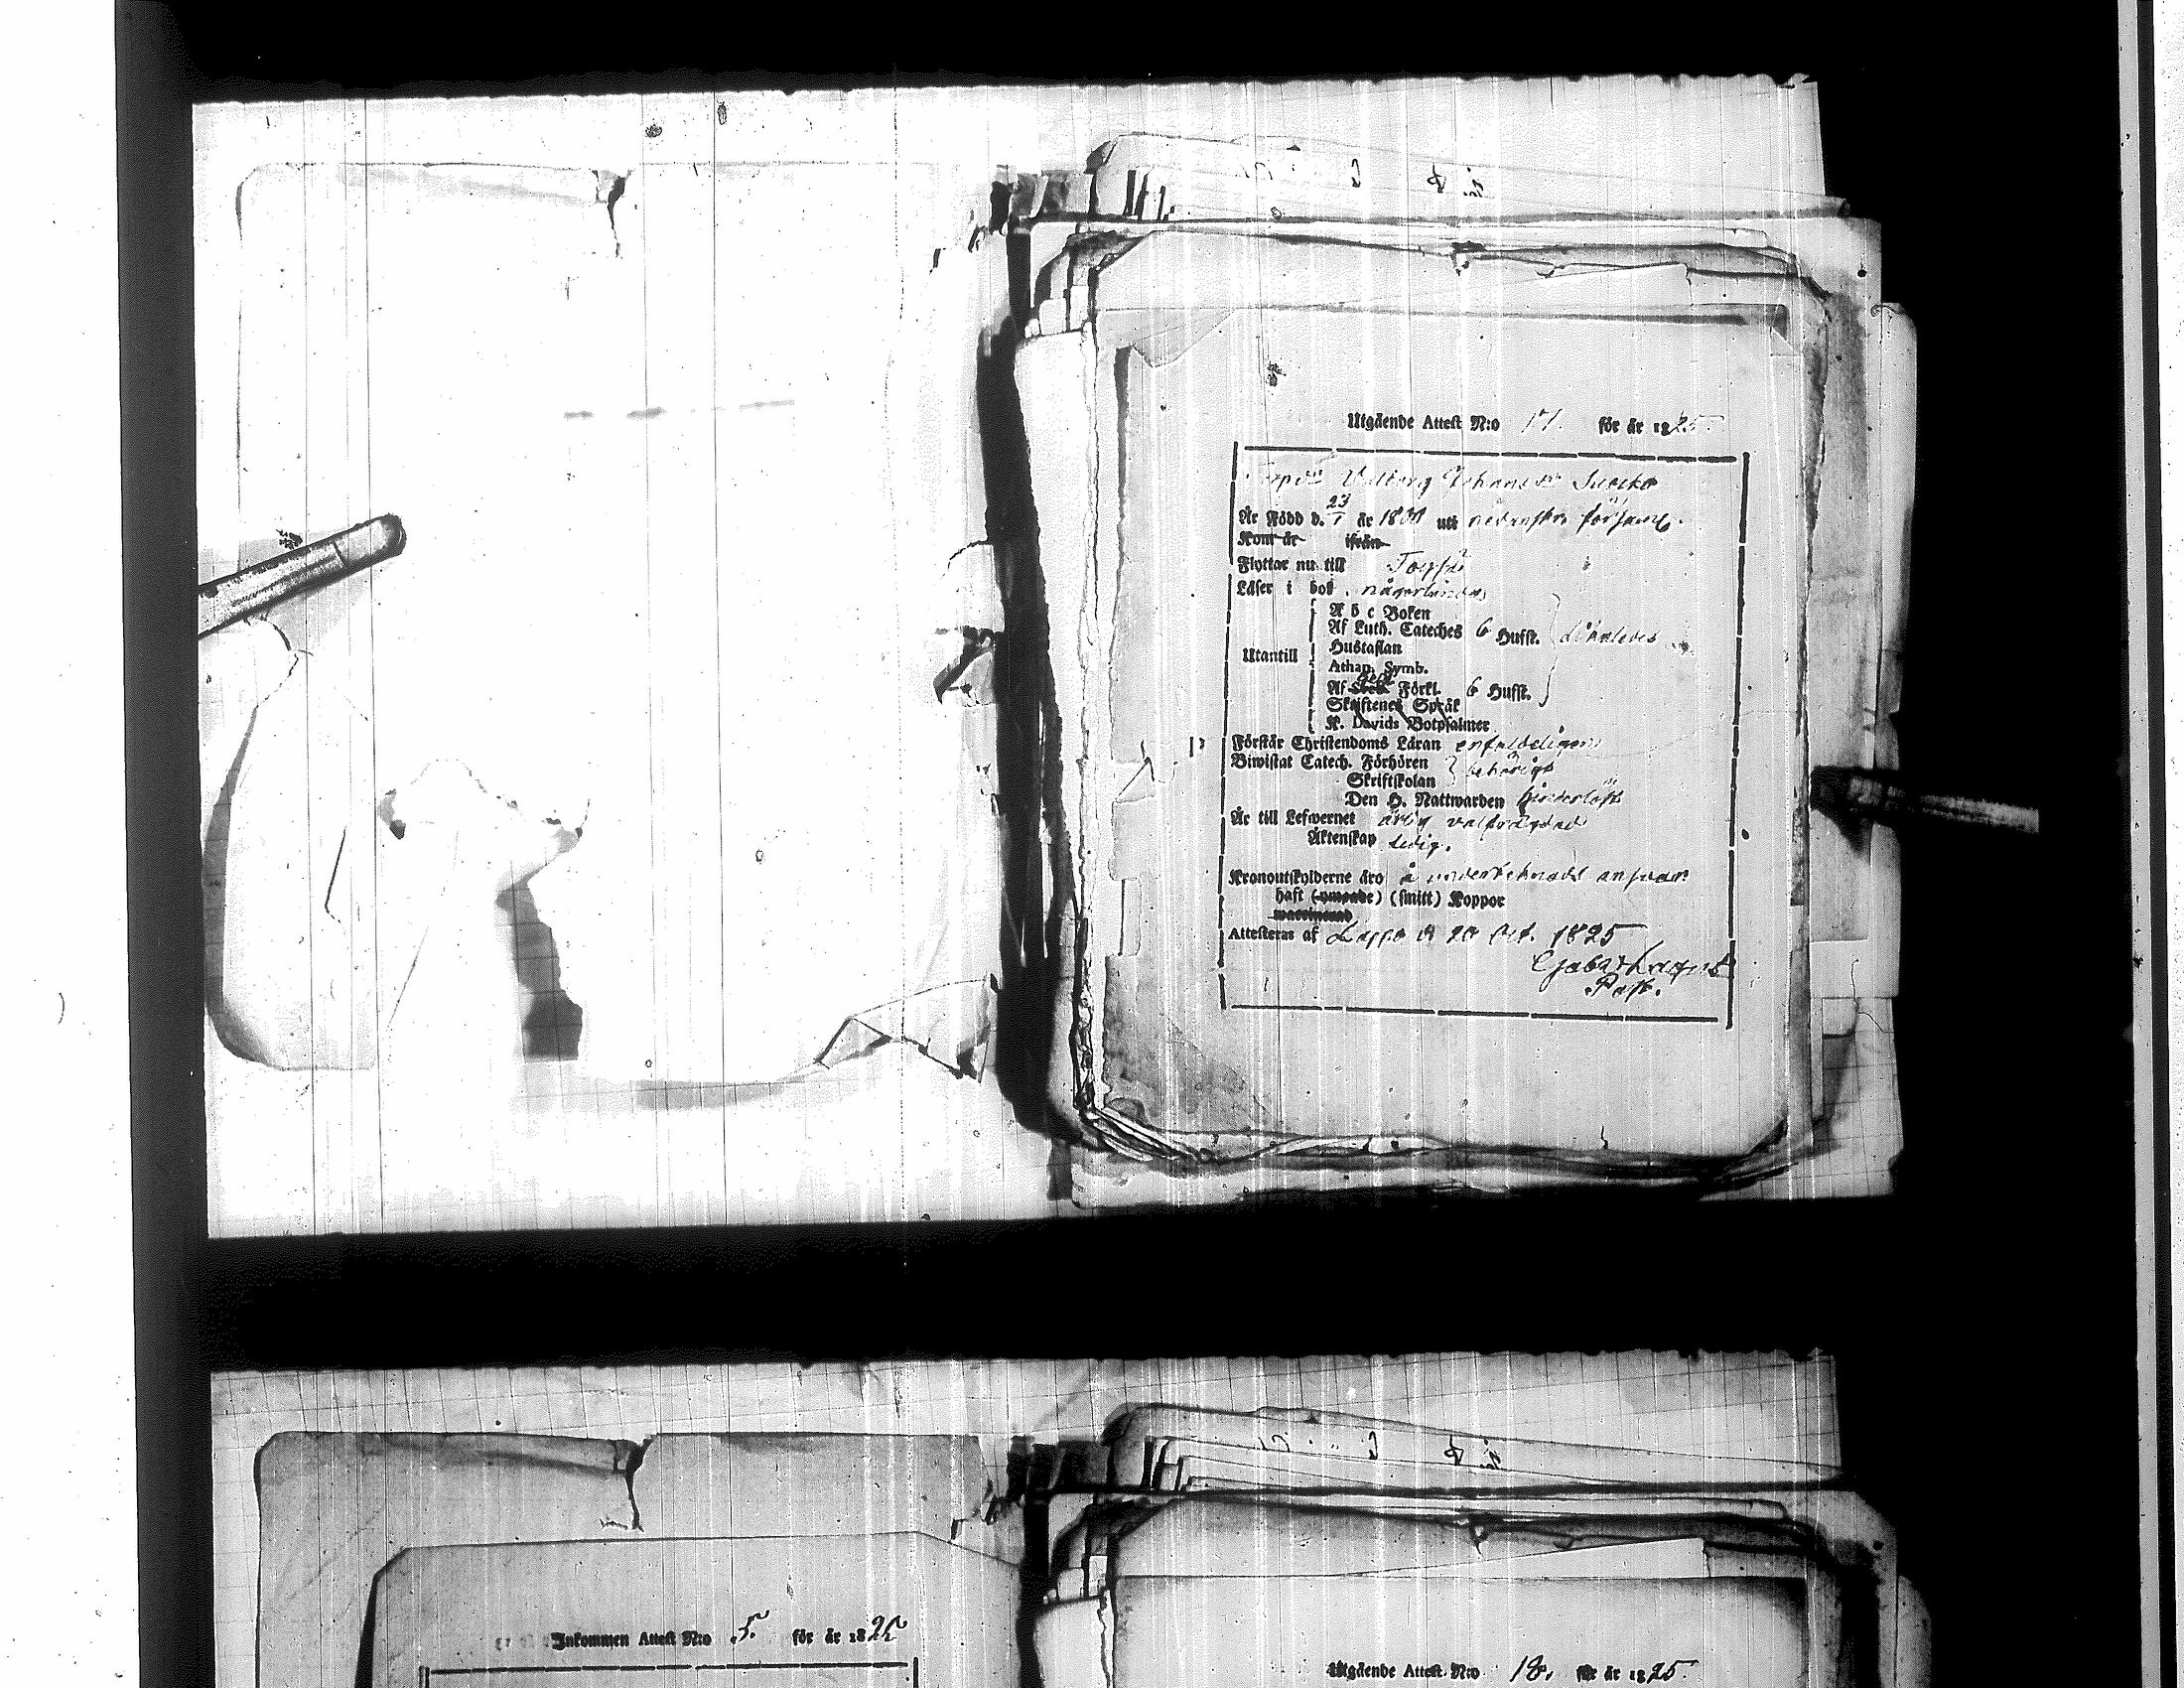 Utgående Attest N:o 17. för år 1825
Johans
Är Född d. 23/1 år uti församl.
Kom år ifrån
Flyttar nu till
Läser i bok någorlunda
A b c Boken
Af Luth. Cateches 6 Hufst. likaledes
Hustaflan
Utantill
Athan. Symb.
Af Förkl. 6 Hufst.
Skriftenes Språk
K. Davids Botpsalmer
Förstår Christendoms Läran enfaldeligen
Biwistat Catech. Förhören behörigt
Skriftskolan
Den H. Nattwarden
Är till Lefwernet ärlig välfrägdad
Äktenskap ledig.
Kronoutskylderne äro å undertecknads answar
haft (ympade) (smitt) Koppor
waccinerad
Attesteras af Lappo d 20 Oct. 1825
Past.
Inkommen Attest N:o 5. för år 1825
Utgående Attest N:o 18. för år 1825